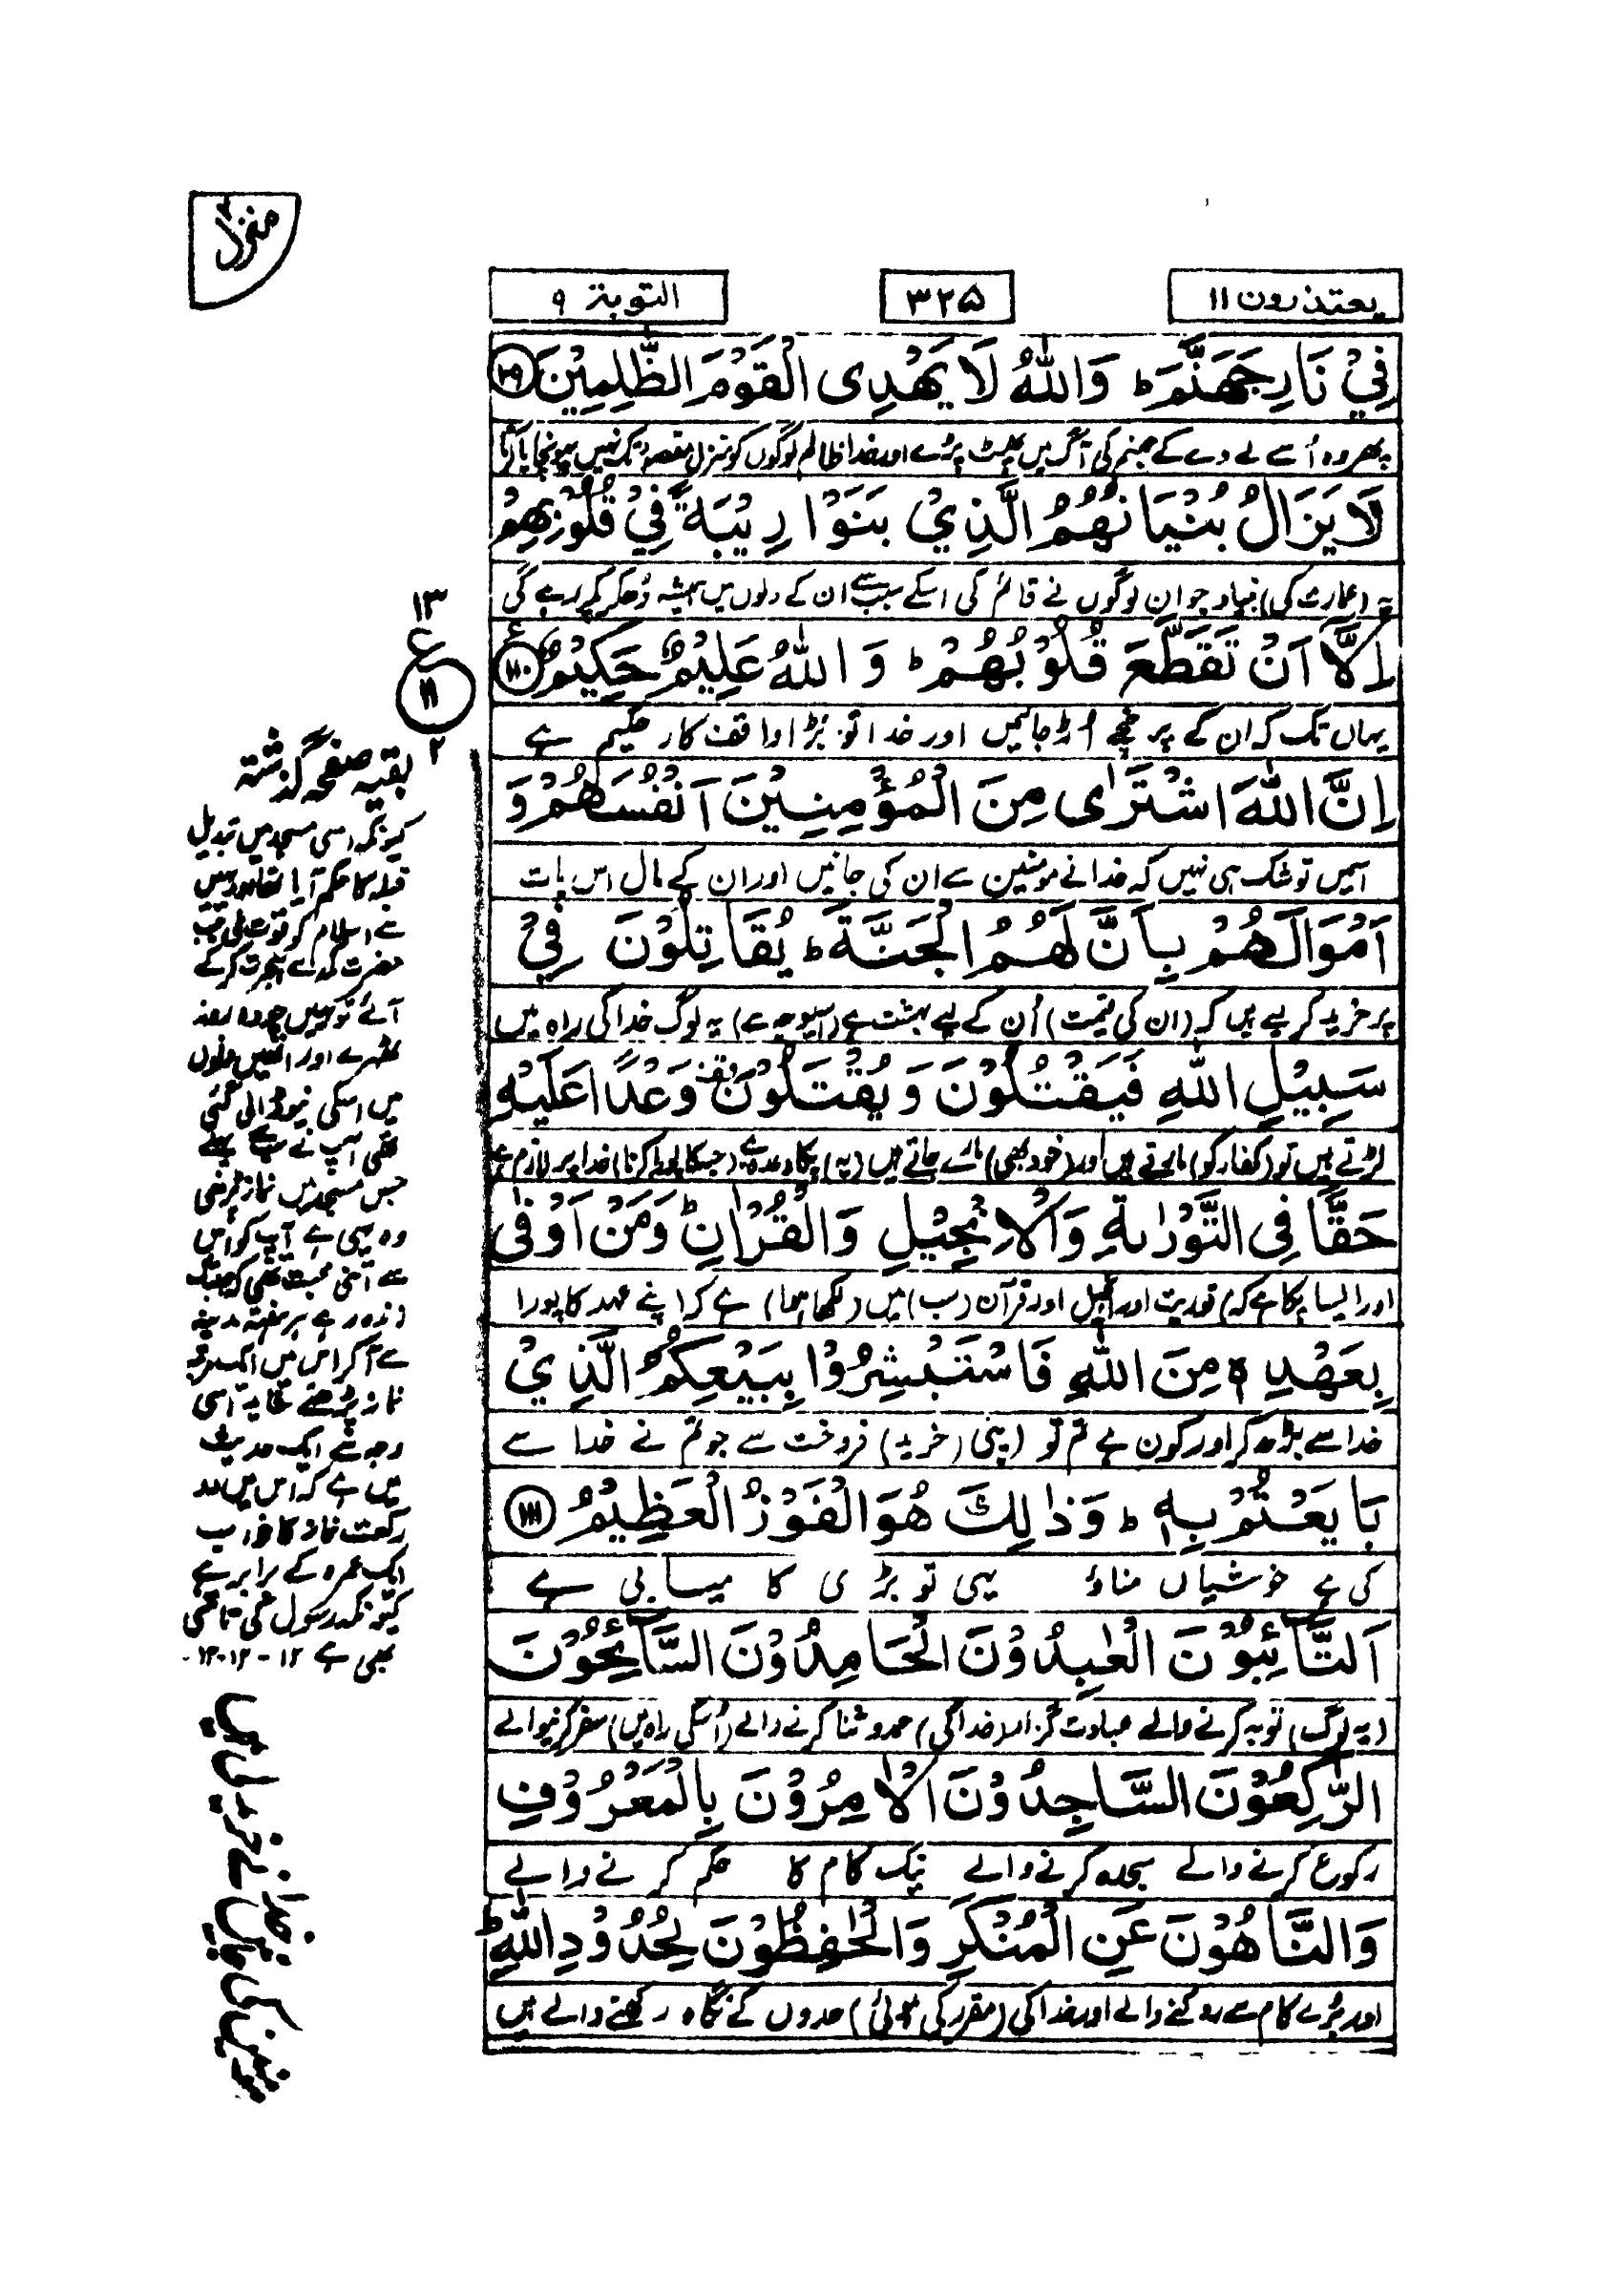 منزل ۲
یعتذرون ۱۱
۳۲۵
التوبة ۹
فِيْ نَارِ جَهَنَّمَ ؕ وَاللّٰهُ لَا يَهْدِی الْقَوْمَ الظّٰلِمِيْنَ ﴿۱۰۹﴾
پھر وہ اُسے لے دے کے جہنم کی آگ میں پھٹ پڑے اور خدا ظالم لوگوں کو منزل مقصود تک نہیں پہونچایا کرتا
لَا يَزَالُ بُنْيَانُهُمُ الَّذِيْ بَنَوْا رِيْبَةً فِيْ قُلُوْبِهِمْ
یہ (عمارت کی) بنیاد جو ان لوگوں نے قائم کی اسکے سبب سے ان کے دلوں میں ہمیشہ دھکڑ پکڑ رہے گی
اِلَّاۤ اَنْ تَقَطَّعَ قُلُوْبُهُمْ ؕ وَ اللّٰهُ عَلِيْمٌ حَكِيْمٌ ﴿۱۱۰﴾
یہاں تک کہ ان کے پرخچے اڑ جائیں اور خدا تو بڑا واقف کار حکیم ہے
اِنَّ اللّٰهَ اشْتَرٰی مِنَ الْمُؤْمِنِيْنَ اَنْفُسَهُمْ وَ
اسمیں تو شک ہی نہیں کہ خدا نے مومنین سے ان کی جانیں اور ان کے مال اس بات
اَمْوَالَهُمْ بِاَنَّ لَهُمُ الْجَنَّةَ ؕ يُقَاتِلُوْنَ فِيْ
پر خرید کر لیے ہیں کہ (ان کی قیمت) اُن کے لیے بہشت ہے (اسیوجہ سے) یہ لوگ خدا کی راہ میں
سَبِيْلِ اللّٰهِ فَيَقْتُلُوْنَ وَ يُقْتَلُوْنَ وَعْدًا عَلَيْهِ
لڑتے ہیں تو (کفار کو) مارتے ہیں اور (خود بھی) مارے جاتے ہیں (یہ) پکا وعدہ ہے (جسکا پورا کرنا) خدا پر لازم ہے
حَقًّا فِی التَّوْرٰىةِ وَالْاِنْجِيْلِ وَالْقُرْاٰنِ ؕ وَمَنْ اَوْفٰی
اور ایسا پکا ہے کہ) توریت اور انجیل اور قرآن (سب) میں (لکھا ہوا) ہے کہ اپنے عہد کا پورا
بِعَهْدِهٖ مِنَ اللّٰهِ فَاسْتَبْشِرُوْا بِبَيْعِكُمُ الَّذِيْ
خدا سے بڑھ کر اور کون ہے تم تو (اپنی) (خرید) فروخت سے جو تم نے خدا سے
بَايَعْتُمْ بِهٖ ؕ وَذٰلِكَ هُوَ الْفَوْزُ الْعَظِيْمُ ﴿۱۱۱﴾
کی ہے خوشیاں مناؤ یہی تو بڑی کامیابی ہے
اَلتَّآئِبُوْنَ الْعٰبِدُوْنَ الْحَامِدُوْنَ السَّآئِحُوْنَ
(یہ لوگ) توبہ کرنے والے عبادت گزار (خدا کی) حمد و ثنا کرنے والے (اُسکی راہ میں) سفر کرنیوالے
الرّٰكِعُوْنَ السَّاجِدُوْنَ الْاٰمِرُوْنَ بِالْمَعْرُوْفِ
رکوع کرنے والے سجدہ کرنے والے نیک کام کا حکم کرنے والے
وَالنَّاهُوْنَ عَنِ الْمُنْكَرِ وَالْحٰفِظُوْنَ لِحُدُوْدِ اللّٰهِ ؕ
اور بُرے کام سے روکنے والے اور خدا کی (مقرر کی ہوئی) حدوں کے نگاہ رکھنے والے ہیں
۱۳
ع
۱۱
۲ بقیہ صفحہ گذشتہ
کیونکہ اسی مسجد میں تبدیل
قبلہ کا حکم آیا تھا اور یہیں
سے اسلام کو قوت ملی جب
حضرت مکہ سے ہجرت کر کے
آئے تو یہیں چودہ روز
ٹھہرے اور انھیں دنوں
میں اسکی نیو ڈالی گئی
تھی آپ نے سب سے پہلے
جس مسجد میں نماز پڑھی
وہ یہی ہے آپ کو اس
سے اتنی محبت تھی کہ جب تک
زندہ رہے ہر ہفتہ مدینہ
سے آکر اس میں ایک مرتبہ
نماز پڑھتے تھے اسی
وجہ سے ایک حدیث
میں ہے کہ اس میں دو
رکعت نماز کا ثواب
ایک عمرہ کے برابر ہے
کیونکہ رسول کی
بھی ہے ۱۲ - ۱۲-۱۳
مومنین کی جانیں خدا نے خرید لی ہیں